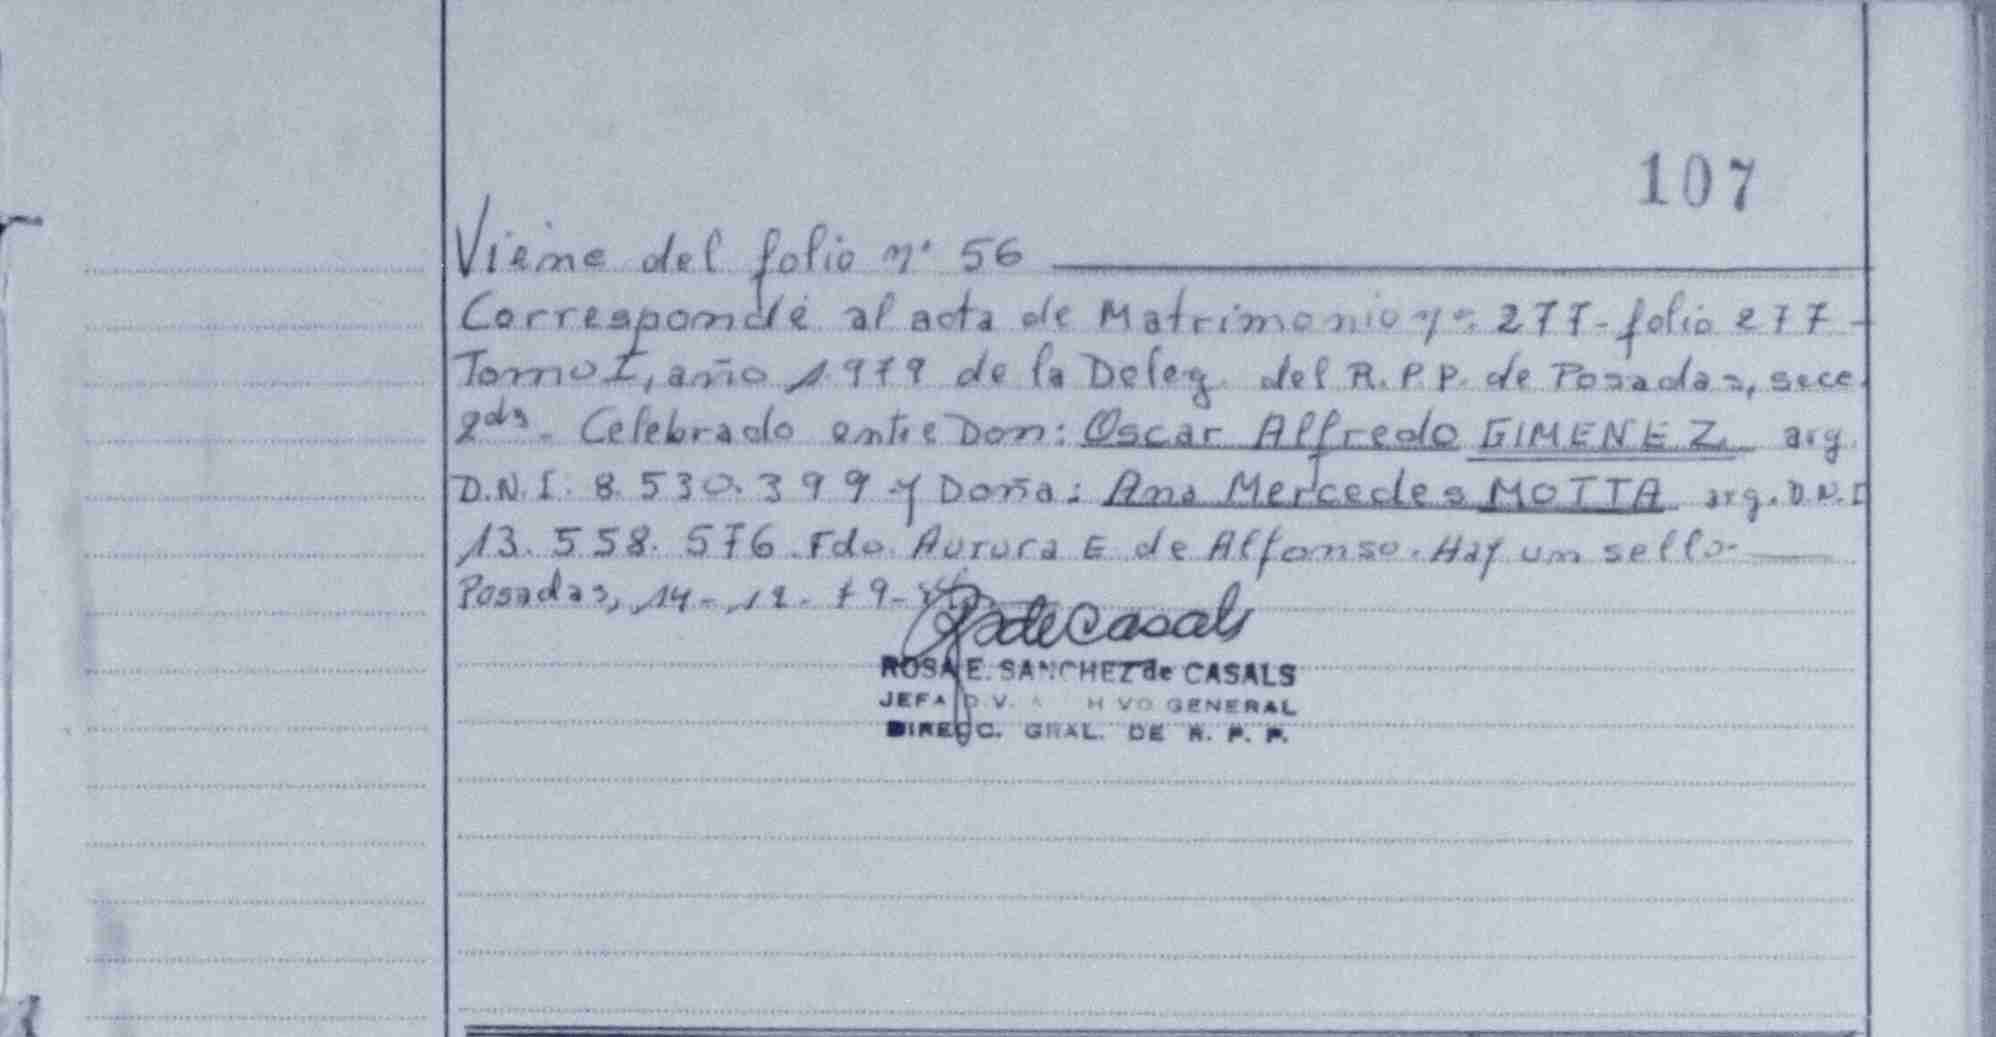 107
Viene del folio nº 56
Corresponde al acta de Matrimonio nº 277 - folio 277 -
Tomo I, año 1979 de la Deleg. del R.P.P. de Posadas, secc.
2da. Celebrado entre Don: Oscar Alfredo GIMENEZ arg.
D.N.I. 8.530.399 y Doña: Ana Mercedes MOTTA arg. D.N.I
13.558.576. Fdo. Aurora E de Alfonso. Hay un sello.
Posadas, 14-12-79-
de Casals
ROSA E. SANCHEZ de CASALS
JEFA GENERAL
DIREC. GRAL. DE R. P. P.